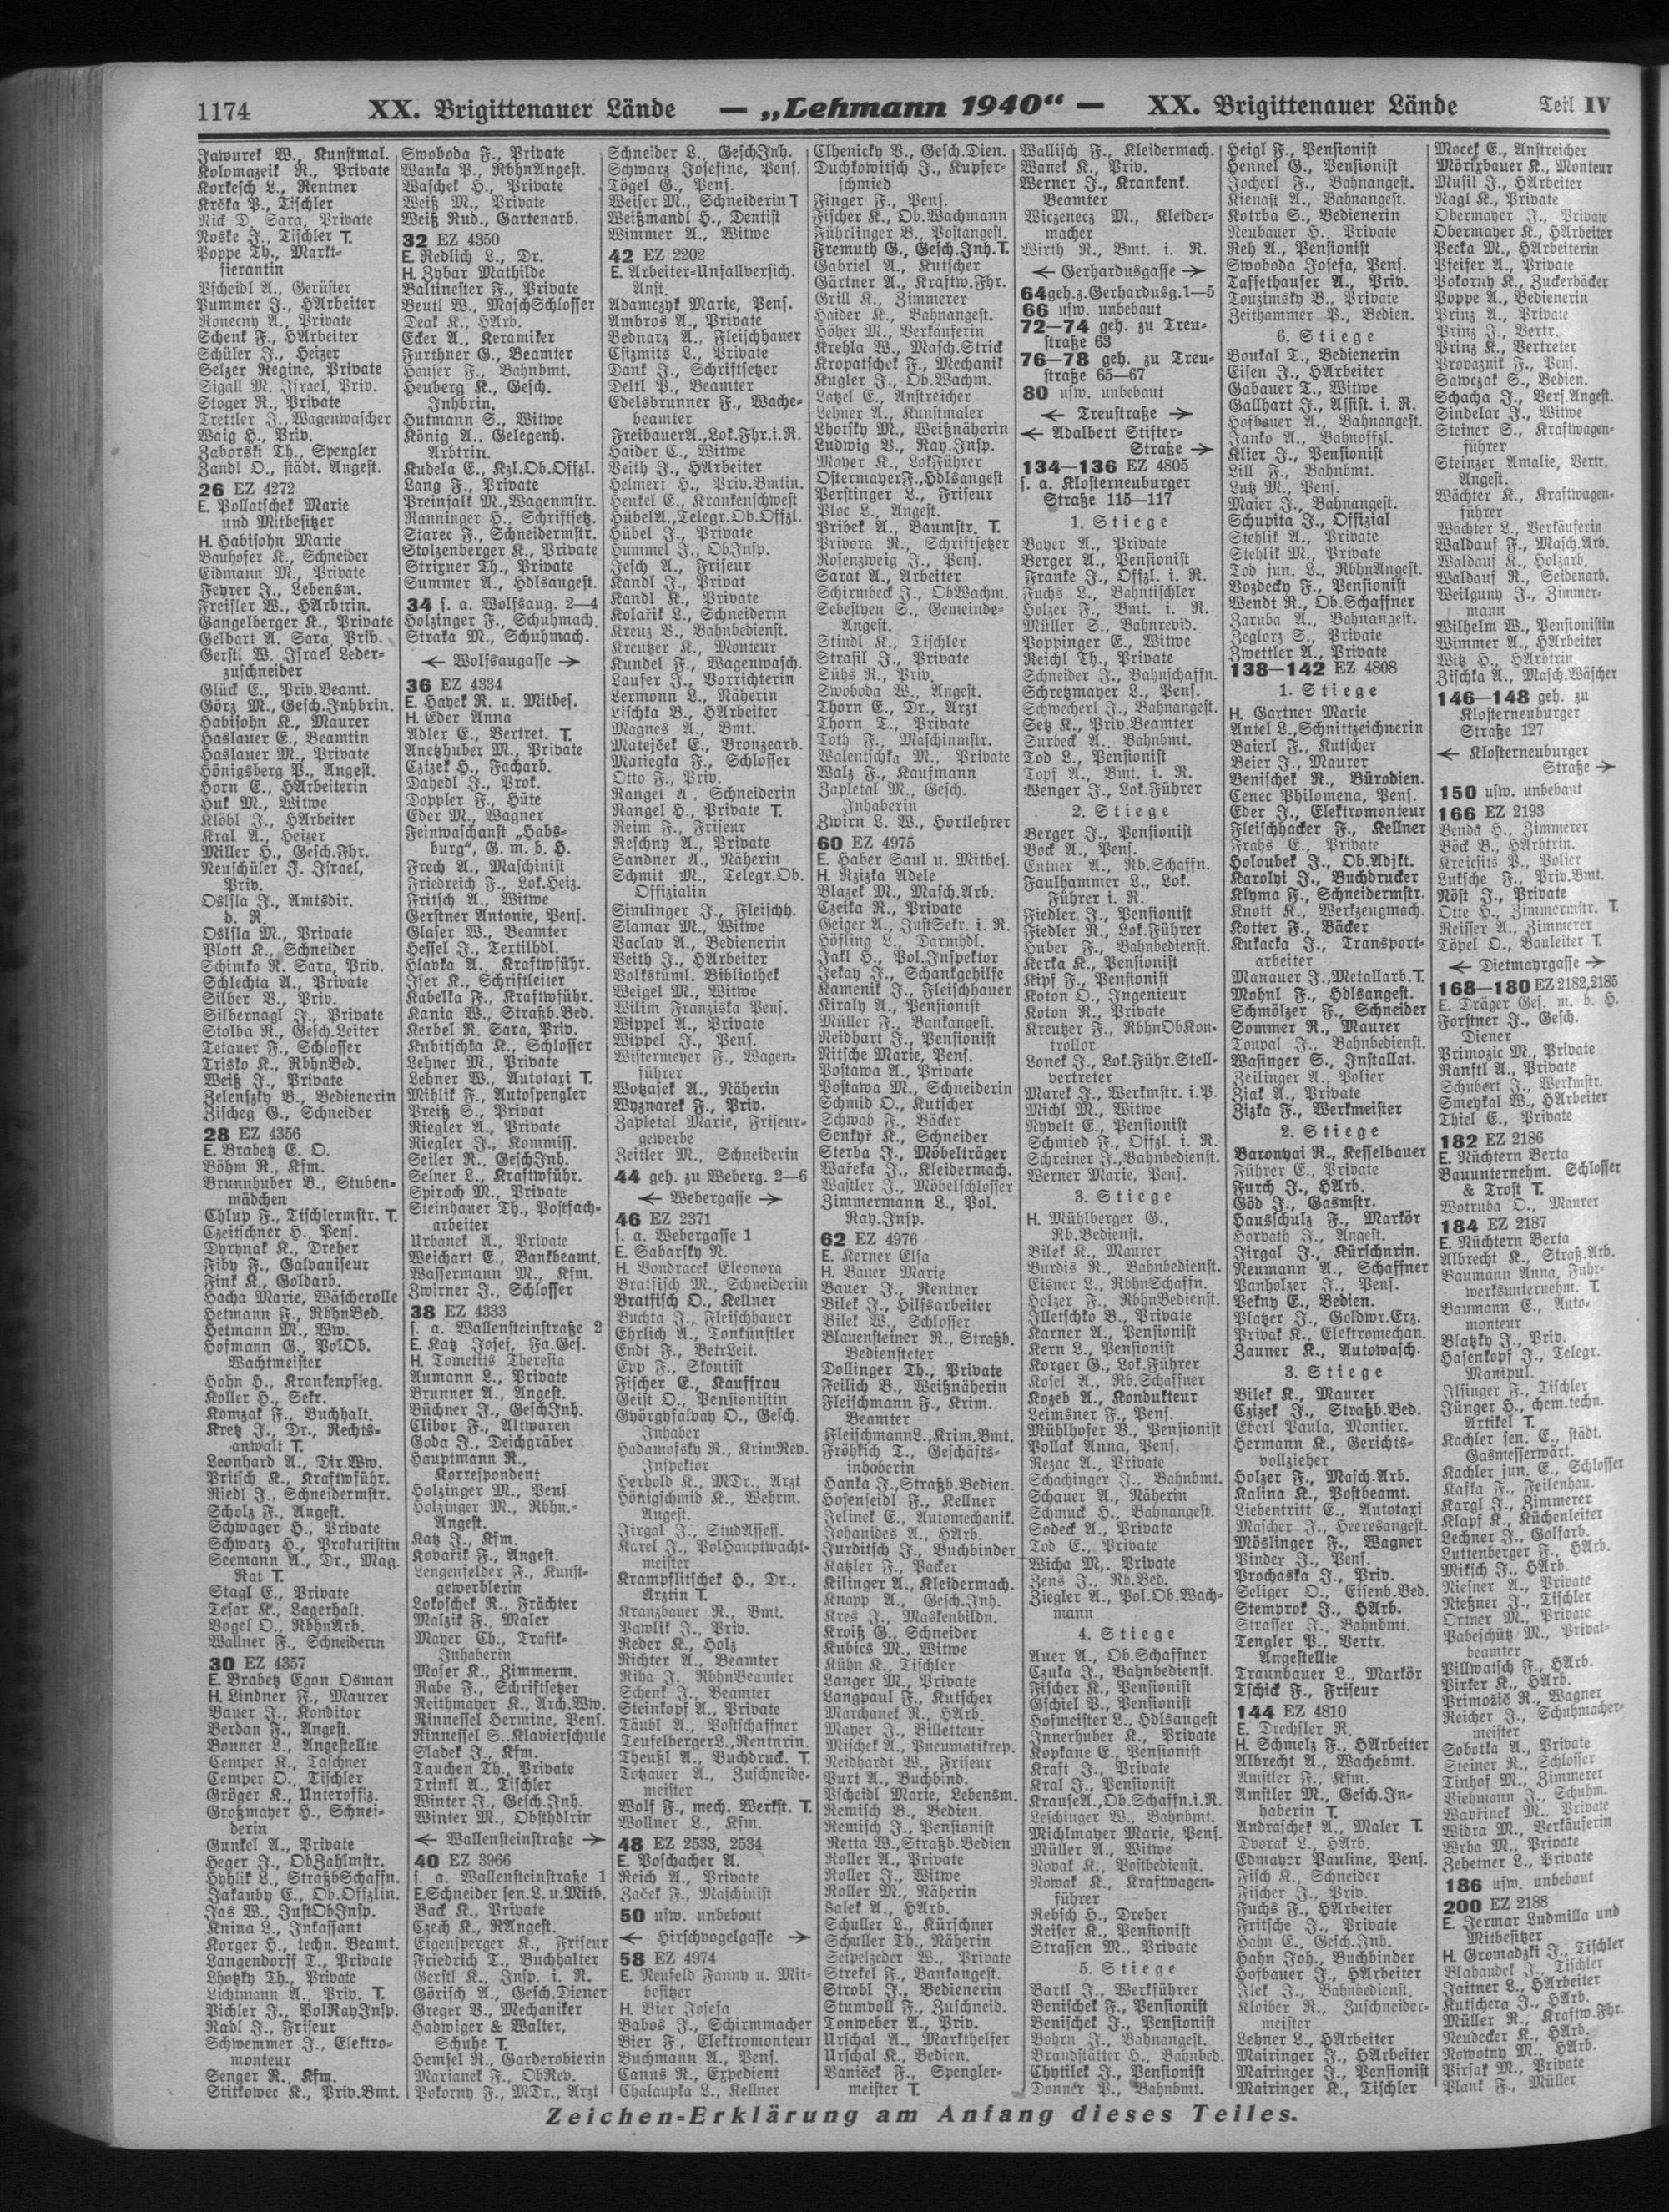 1174 XX. Brigittenauer Lände — „Lehmann 1940“ — XX. Brigittenauer Lände Teil IV
Jawurek W., Kunstmal.
Kolomazeik R., Private
Korkesch L., Rentner
Krčka P., Tischler
Nick D. Sara, Private
Noske J., Tischler T.
Poppe Th., Markt-
fierantin
Pscheidl A., Gerüster
Pummer J., HArbeiter
Ronecny A., Private
Schenk F., HArbeiter
Schüler J., Heizer
Selzer Regine, Private
Sigall M. Israel, Priv.
Stoger R., Private
Trettler J., Wagenwascher
Waig H., Priv.
Zaborski Th., Spengler
Zandl O., städt. Angest.
26 EZ 4272
E. Pollatschek Marie
und Mitbesitzer
H. Habisohn Marie
Bauhofer K., Schneider
Eidmann M., Private
Feyrer J., Lebensm.
Freisler W., HArbtrin.
Gangelberger K., Private
Gelbart A. Sara, Priv.
Gerstl W. Israel Leder-
zuschneider
Glück E., Priv.Beamt.
Görz M., Gesch.Inhbrin.
Habisohn K., Maurer
Haslauer E., Beamtin
Haslauer M., Private
Hönigsberg P., Angest.
Horn E., HArbeiterin
Huk M., Witwe
Klöbl J., HArbeiter
Kral A., Heizer
Miller H., Gesch.Fhr.
Neuschüler J. Israel,
Priv.
Oslsla J., Amtsdir.
d. R.
Oslsla M., Private
Plott K., Schneider
Schimko R. Sara, Priv.
Schlechta A., Private
Silber B., Priv.
Silbernagl J., Private
Stolba R., Gesch.Leiter
Tetauer F., Schlosser
Trisko K., RbhnBed.
Weiß J., Private
Zelenszky B., Bedienerin
Zischeg G., Schneider
28 EZ 4356
E. Brabetz E. O.
Böhm R., Kfm.
Brunnhuber B., Stuben-
mädchen
Chlup F., Tischlermstr. T.
Czeitschner H., Pens.
Dyrynak K., Dreher
Fiby F., Galvaniseur
Fink K., Goldarb.
Hacha Marie, Wäscherolle
Hetmann F., RbhnBed.
Hetmann M., Ww.
Hofmann G., PolOb.
Wachtmeister
Hohn H., Krankenpfleg.
Koller H., Sekr.
Komzak F., Buchhalt.
Kretz J., Dr., Rechts-
anwalt T.
Leonhard A., Dir.Ww.
Pritsch K., Kraftwführ.
Riedl J., Schneidermstr.
Scholz F., Angest.
Schwager H., Private
Schwarz H., Prokuristin
Seemann A., Dr., Mag.
Rat T.
Stagl E., Private
Tesar K., Lagerhalt.
Vogel O., RbhnArb.
Wallner F., Schneiderin
30 EZ 4357
E. Brabetz Egon Osman
H. Lindner F., Maurer
Bauer J., Konditor
Berdan F., Angest.
Bonner L., Angestellte
Cemper K., Taschner
Cemper O., Tischler
Gröger K., Unteroffiz.
Großmayer H., Schnei-
derin
Gunkel A., Private
Heger J., ObZahlmstr.
Hyhlik L., StraßbSchaffn.
Jakauby E., Ob.Offzlin.
Jas W., JustObInsp.
Knina L., Inkassant
Korger H., techn. Beamt.
Langendorff T., Private
Lhotzky Th., Private
Lichtmann A., Priv. T.
Pichler J., PolRayInsp.
Radl J., Friseur
Schwemmer J., Elektro-
monteur
Senger R., Kfm.
Stitkowec K., Priv.Bmt.
Swoboda F., Private
Wanka P., RbhnAngest.
Waschek H., Private
Weiß M., Private
Weiß Rud., Gartenarb.
32 EZ 4350
E. Redlich L., Dr.
H. Zybar Mathilde
Baltinester F., Private
Beutl W., MaschSchlosser
Deak K., HArb.
Ecker A., Keramiker
Furthner G., Beamter
Hauser F., Bahnbmt.
Heuberg K., Gesch.
Inhbrin.
Hutmann S., Witwe
König A., Gelegenh.
Arbtrin.
Kudela E., Kzl.Ob.Offzl.
Lang F., Private
Preinfalk M., Wagenmstr.
Ranninger H., Schriftsetz.
Starec F., Schneidermstr.
Stolzenberger K., Private
Strixner Th., Private
Summer A., Hdlsangest.
34 s. a. Wolfsaug. 2—4
Holzinger F., Schuhmach.
Straka M., Schuhmach.
← Wolfsaugasse →
36 EZ 4334
E. Hayek R. u. Mitbes.
H. Eder Anna
Adler E., Vertret. T.
Anetzhuber M., Private
Czizek H., Facharb.
Dahedl J., Prok.
Doppler F., Hüte
Eder M., Wagner
Feinwaschanst „Habs-
burg“, G. m. b. H.
Frech A., Maschinist
Friedreich F., Lok.Heiz.
Fritsch A., Witwe
Gerstner Antonie, Pens.
Glaser W., Beamter
Hessel J., Textilhdl.
Hlavka A., Kraftwführ.
Iser K., Schriftleiter
Kabelka F., Kraftwführ.
Kania W., Straßb.Bed.
Kerbel R. Sara, Priv.
Kubitschka K., Schlosser
Lehner M., Private
Lehner W., Autotaxi T.
Mihlik F., Autospengler
Preiß S., Privat
Riegler A., Private
Riegler J., Kommiss.
Seiler R., GeschInh.
Selner L., Kraftwführ.
Spiroch M., Private
Steinhauer Th., Postfach-
arbeiter
Urbanek A., Private
Weichart E., Bankbeamt.
Wassermann M., Kfm.
Zwirner J., Schlosser
38 EZ 4333
s. a. Wallensteinstraße 2
E. Katz Josef, Fa.Ges.
H. Tometits Theresia
Aumann L., Private
Brunner A., Angest.
Büchner J., GeschInh.
Clibor F., Altwaren
Goda J., Deichgräber
Hauptmann R.,
Korrespondent
Holzinger M., Pens
Holzinger M., Rbhn.-
Angest.
Katz J., Kfm.
Kovařik F., Angest.
Lengenfelder F., Kunst-
gewerblerin
Lokoschek R., Frächter
Malzik F., Maler
Mayer Ch., Trafik-
Inhaberin
Moser K., Zimmerm.
Rabe F., Schriftsetzer
Reithmayer K., Arch.Ww.
Rinnessel Hermine, Pens.
Rinnessel S., Klavierschule
Sladek J., Kfm.
Tauchen Th., Private
Trinkl A., Tischler
Winter J., Gesch.Inh.
Winter M., Obsthdlrin
← Wallensteinstraße →
40 EZ 3966
s. a. Wallensteinstraße 1
E. Schneider sen. L. u. Mitb.
Back K., Private
Czech K., RAngest.
Eigensperger K., Friseur
Friedrich T., Buchhalter
Gerstl K., Insp. i. R.
Görisch A., Gesch.Diener
Greger B., Mechaniker
Hadwiger & Walter,
Schuhe T.
Hemsel R., Garderobierin
Marianek F., ObRev.
Pokorny F., MDr., Arzt
Schneider L., GeschInh.
Schwarz Josefine, Pens.
Tögel G., Pens.
Weiser M., Schneiderin T
Weißmandl H., Dentist
Wimmer A., Witwe
42 EZ 2202
E. Arbeiter-Unfallversich.
Anst.
Adamczyk Marie, Pens.
Ambros A., Private
Bednarz A., Fleischhauer
Csizmits L., Private
Dank J., Schriftsetzer
Deltl P., Beamter
Edelsbrunner F., Wache-
beamter
Freibauer A., Lok.Fhr.i.R.
Haider C., Witwe
Veith J., HArbeiter
Helmert H., Priv.Bmtin.
Henkel E., Krankenschwest
Hübel A., Telegr.Ob.Offzl.
Hübel J., Private
Hummel J., ObInsp.
Jesch A., Friseur
Kandl J., Privat
Kandl K., Private
Kolařik L., Schneiderin
Kreuz B., Bahnbedienst.
Kreutzer K., Monteur
Kundel F., Wagenwasch.
Laufer J., Vorrichterin
Lermonn L., Näherin
Lischka B., HArbeiter
Magnes A., Bmt.
Matejček E., Bronzearb.
Matiegka F., Schlosser
Otto F., Priv.
Rangel A., Schneiderin
Rangel H., Private T.
Reim F., Friseur
Reschny A., Private
Sandner A., Näherin
Schmit M., Telegr.Ob.
Offizialin
Simlinger J., Fleischh.
Slamar M., Witwe
Vaclav A., Bedienerin
Veith J., HArbeiter
Volkstüml. Bibliothek
Weigel M., Witwe
Wilim Franziska Pens.
Wippel A., Private
Wippel J., Pens.
Wistermeyer F., Wagen-
führer
Wotzasek A., Näherin
Wyznarek F., Priv.
Zapletal Marie, Friseur-
gewerbe
Zeitler M., Schneiderin
44 geh. zu Weberg. 2—6
← Webergasse →
46 EZ 2371
s. a. Webergasse 1
E. Sabarsky N.
H. Vondracek Eleonora
Bratfisch M., Schneiderin
Bratfisch O., Kellner
Buchta J., Fleischhauer
Ehrlich A., Tonkünstler
Endt F., BetrLeit.
Epp F., Skontist
Fischer E., Kauffrau
Geist O., Pensionistin
Györgysalvay O., Gesch.
Inhaber
Hadamofsky R., KrimRev.
Inspektor
Herhold K., MDr., Arzt
Hönigschmid K., Wehrm.
Angest.
Jirgal J., StudAssess.
Karel J., PolHauptwacht-
meister
Krampflitschek H., Dr.,
Ärztin T.
Kranzbauer R., Bmt.
Pawlik J., Priv.
Reder K., Holz
Richter A., Beamter
Riha J., RbhnBeamter
Schenk J., Beamter
Steinkopf A., Private
Täubl A., Postschaffner
Teufelberger L., Rentnrin.
Theußl A., Buchdruck. T.
Totzauer A., Zuschneide-
meister
Wolf F., mech. Werkst. T.
Wollner L., Kfm.
48 EZ 2533, 2534
E. Poschacher A.
Reich A., Private
Začek F., Maschinist
50 usw. unbebaut
← Hirschvogelgasse →
58 EZ 4974
E. Neufeld Fanny u. Mit-
besitzer
H. Bier Josefa
Babos J., Schirmmacher
Bier F., Elektromonteur
Buchmann A., Pens.
Canus R., Expedient
Chalaupka L., Kellner
Clhenicky B., Gesch.Dien.
Duchkowitsch J., Kupfer-
schmied
Finger F., Pens.
Fischer K., Ob.Wachmann
Führlinger B., Postangest.
Fremuth G., Gesch.Inh.T.
Gabriel A., Kutscher
Gärtner A., Kraftw.Fhr.
Grill K., Zimmerer
Haider K., Bahnangest.
Höher M., Verkäuferin
Krehla W., Masch.Strick
Kropatschek F., Mechanik
Kugler J., Ob.Wachm.
Latzel E., Anstreicher
Lehner A., Kunstmaler
Lhotsky M., Weißnäherin
Ludwig V., Ray.Insp.
Mayer K., LokFührer
Ostermayer F., Hdlsangest
Perstinger L., Friseur
Ploc L., Angest.
Pribek A., Baumstr. T.
Privora R., Schriftsetzer
Rosenzweig J., Pens.
Sarat A., Arbeiter
Schirmbeck J., ObWachm.
Sebestyen S., Gemeinde-
Angest.
Stindl K., Tischler
Strasil J., Private
Sühs R., Priv.
Swoboda W., Angest.
Thorn E., Dr., Arzt
Thorn T., Private
Toth F., Maschinmstr.
Walentschka M., Private
Walz F., Kaufmann
Zapletal M., Gesch.
Inhaberin
Zwirn L. W., Hortlehrer
60 EZ 4975
E. Haber Saul u. Mitbes.
H. Rzizka Adele
Blazek M., Masch.Arb.
Czeika R., Private
Geiger A., JustSekr. i. R.
Höfling L., Darmhdl.
Jakl H., Pol.Inspektor
Jekay J., Schankgehilfe
Kamenik J., Fleischhauer
Kiraly A., Pensionist
Müller F., Bankangest.
Neidhart J., Pensionist
Nitsche Marie, Pens.
Postawa A., Private
Postawa M., Schneiderin
Schmid O., Kutscher
Schwab F., Bäcker
Senkyř K., Schneider
Sterba J., Möbelträger
Wařeka J., Kleidermach.
Wastler J., Möbelschlosser
Zimmermann L., Pol.
Ray.Insp.
62 EZ 4976
E. Kerner Elsa
H. Bauer Marie
Bauer J., Rentner
Bilek J., Hilfsarbeiter
Bilek W., Schlosser
Blauensteiner R., Straßb.
Bediensteter
Dollinger Th., Private
Feilich B., Weißnäherin
Fleischmann F., Krim.
Beamter
Fleischmann L., Krim.Bmt.
Fröhlich T., Geschäfts-
inhaberin
Hanka J., Straßb.Bedien.
Hosenseidl F., Kellner
Jelinek E., Automechanik.
Johanides A., HArb.
Jurditsch J., Buchbinder
Katzler F., Packer
Kilinger A., Kleidermach.
Knapp A., Gesch.Inh.
Kres J., Maskenbildn.
Kroiß G., Schneider
Kubics M., Witwe
Kühn K., Tischler
Langer M., Private
Langpaul F., Kutscher
Marchanek R., HArb.
Mayer J., Billetteur
Mischek A., Pneumatikrep.
Neidhardt W., Friseur
Purt A., Buchbind.
Pscheidl Marie, Lebensm.
Remisch B., Bedien.
Remisch J., Pensionist
Retta W., Straßb.Bedien
Roller A., Private
Roller J., Witwe
Roller M., Näherin
Salek A., HArb.
Schuller L., Kürschner
Schuller Th., Näherin
Seipelzeder W., Private
Strekel F., Bankangest.
Strobl J., Bedienerin
Stumvoll F., Zuschneid.
Tonweber A., Priv.
Urschal A., Markthelfer
Urschal K., Bedien.
Vaniček F., Spengler-
meister T.
Wallisch F., Kleidermach.
Wanek K., Priv.
Werner J., Krankenk.
Beamter
Wiczenecz M., Kleider-
macher
Wirth R., Bmt. i. R.
← Gerhardusgasse →
64 geh.z.Gerhardusg.1—5
66 usw. unbebaut
72—74 geh. zu Treu-
straße 63
76—78 geh. zu Treu-
straße 65—67
80 usw. unbebaut
← Treustraße →
← Adalbert Stifter-
Straße →
134—136 EZ 4805
s. a. Klosterneuburger
Straße 115—117
1. Stiege
Bayer A., Private
Berger A., Pensionist
Franke J., Offzl. i. R.
Fuchs L., Bahntischler
Holzer F., Bmt. i. R.
Müller S., Bahnrevid.
Poppinger E., Witwe
Reichl Th., Private
Schneider J., Bahnschaffn.
Schretzmayer L., Pens.
Schwecherl J., Bahnangest.
Setz K., Priv.Beamter
Surbeck A., Bahnbmt.
Tod L., Pensionist
Topf A., Bmt. i. R.
Wenger J., Lok.Führer
2. Stiege
Berger J., Pensionist
Bock A., Pens.
Entner A., Rb.Schaffn.
Faulhammer L., Lok.
Führer i. R.
Fiedler J., Pensionist
Fiedler R., Lok.Führer
Huber F., Bahnbedienst.
Kerka K., Pensionist
Kipf F., Pensionist
Koton O., Ingenieur
Koton R., Private
Kreutzer F., RbhnObKon-
trollor
Lonek J., Lok.Führ.Stell-
vertreter
Marek J., Werkmstr. i.P.
Michl M., Witwe
Nyvelt E., Pensionist
Schmied F., Offzl. i. R.
Schreiner J., Bahnbedienst.
Werner Marie, Pens.
3. Stiege
H. Mühlberger G.,
Rb.Bedienst.
Bilek K., Maurer
Burdis R., Bahnbedienst.
Eisner L., RbhnSchaffn.
Holzer F., RbhnBedienst.
Illetschko B., Private
Karner A., Pensionist
Kern L., Pensionist
Korger G., Lok.Führer
Kosel A., Rb.Schaffner
Kozeb A., Kondukteur
Leimsner F., Pens.
Mühlhofer B., Pensionist
Pollak Anna, Pens.
Rezac A., Private
Schachinger J., Bahnbmt.
Schauer A., Näherin
Schmuck H., Bahnangest.
Sodeck A., Private
Tod E., Private
Wicha M., Private
Zens J., Rb.Bed.
Ziegler A., Pol.Ob.Wach-
mann
4. Stiege
Auer A., Ob.Schaffner
Czuka J., Bahnbedienst.
Fischer K., Pensionist
Gschiel P., Pensionist
Hofmeister L., Hdlsangest
Innerhuber K., Private
Kopkane E., Pensionist
Kraft J., Private
Kral J., Pensionist
Krause A., Ob.Schaffn.i.R.
Leschinger W., Bahnbmt.
Michlmayer Marie, Pens.
Müller A., Witwe
Novak K., Postbedienst.
Nowak K., Kraftwagen-
führer
Rebsch H., Dreher
Reiser K., Pensionist
Strassen M., Private
5. Stiege
Bartl J., Werkführer
Benischek F., Pensionist
Benischek J., Pensionist
Bohrn J., Bahnangest.
Brandstätter H., Bahnbed.
Chytilek J., Pensionist
Donner P., Bahnbmt.
Heigl F., Pensionist
Hennel G., Pensionist
Jocherl F., Bahnangest.
Kienast A., Bahnangest.
Kotrba S., Bedienerin
Neubauer H., Private
Reh A., Pensionist
Swoboda Josefa, Pens.
Taffethauser A., Priv.
Touzimsky B., Private
Zeithammer P., Bedien.
6. Stiege
Boukal T., Bedienerin
Eisen J., HArbeiter
Gabauer T., Witwe
Gallhart J., Assist. i. R.
Hofbauer A., Bahnangest.
Janko A., Bahnoffzl.
Klier J., Pensionist
Lill F., Bahnbmt.
Lutz M., Pens.
Maier J., Bahnangest.
Schupita J., Offizial
Stehlik A., Private
Stehlik M., Private
Tod jun. L., RbhnAngest.
Vozdecky F., Pensionist
Wendt R., Ob.Schaffner
Zaruba A., Bahnangest.
Zeglorz S., Private
Zwettler A., Private
138—142 EZ 4808
1. Stiege
H. Gartner Marie
Antel L., Schnittzeichnerin
Baierl F., Kutscher
Beier J., Maurer
Benischek R., Bürodien.
Cenec Philomena, Pens.
Eder J., Elektromonteur
Fleischhacker F., Kellner
Frahs E., Private
Holoubek J., Ob.Adjkt.
Karolyi J., Buchdrucker
Klyma F., Schneidermstr.
Knott K., Werkzeugmach.
Kotter F., Bäcker
Kukacka J., Transport-
arbeiter
Manauer J., Metallarb. T.
Mohnl F., Hdlsangest.
Schmölzer F., Schneider
Sommer R., Maurer
Toupal J., Bahnbedienst.
Wasinger S., Installat.
Zeilinger A., Polier
Ziak A., Private
Zizka F., Werkmeister
2. Stiege
Baronyai R., Kesselbauer
Führer E., Private
Furch J., HArb.
Göd J., Gasmstr.
Hausschulz F., Markör
Horvath J., Angest.
Jirgal J., Kürschnrin.
Neumann A., Schaffner
Panholzer J., Pens.
Pekny E., Bedien.
Platzer J., Goldwr.Erz.
Privak K., Elektromechan.
Zauner K., Autowasch.
3. Stiege
Bilek K., Maurer
Czizek J., Straßb.Bed.
Eberl Paula, Montier.
Hermann K., Gerichts-
vollzieher
Holzer F., Masch.Arb.
Kalina K., Postbeamt.
Liebentritt E., Autotaxi
Mascher J., Heeresangest.
Möslinger F., Wagner
Pinder J., Pens.
Prochaska J., Priv.
Seliger O., Eisenb.Bed.
Stemprok J., HArb.
Strasser J., Bahnbmt.
Tengler P., Vertr.
Angestellte
Traunbauer L., Markör
Tschick F., Friseur
144 EZ 4810
E. Drechsler R.
H. Schmelz F., HArbeiter
Albrecht A., Wachebmt.
Amstler F., Kfm.
Amstler M., Gesch.In-
haberin T.
Andraschek A., Maler T.
Dvorak L., HArb.
Edmayer Pauline, Pens.
Fisch K., Schneider
Fischer J., Priv.
Fuchs F., HArbeiter
Fritsche J., Private
Hahn E., Gesch.Inh.
Hahn Joh., Buchbinder
Hofbauer J., HArbeiter
Jlek J., Bahnbedienst.
Kloiber R., Zuschneider-
meister
Lehner L., HArbeiter
Mairinger J., HArbeiter
Mairinger J., Pensionist
Mairinger K., Tischler
Mocek E., Anstreicher
Mörixbauer K., Monteur
Musil J., HArbeiter
Nagl K., Private
Obermayer J., Private
Obermayer K., HArbeiter
Pecka M., HArbeiterin
Pfeifer A., Private
Pokorny K., Zuckerbäcker
Poppe A., Bedienerin
Prinz A., Private
Prinz J., Vertr.
Prinz K., Vertreter
Provaznik F., Pens.
Sawczak S., Bedien.
Schacha J., Vers.Angest.
Sindelar J., Witwe
Steiner S., Kraftwagen-
führer
Steinzer Amalie, Vertr.
Angest.
Wächter K., Kraftwagen-
führer
Wächter L., Verkäuferin
Waldauf F., Masch.Arb.
Waldauf K., Holzarb.
Waldauf R., Seidenarb.
Weilguny J., Zimmer-
mann
Wilhelm W., Pensionistin
Wimmer A., HArbeiter
Witz H., HArbtrin.
Zischka A., Masch.Wäscher
146—148 geh. zu
Klosterneuburger
Straße 127
← Klosterneuburger
Straße →
150 usw. unbebaut
166 EZ 2193
Benda H., Zimmerer
Böck B., HArbtrin.
Kreicsits P., Polier
Luksche F., Priv.Bmt.
Nöst J., Private
Otte H., Zimmermstr. T.
Reisser A., Zimmerer
Töpel O., Bauleiter T.
← Dietmayrgasse →
168—180 EZ 2182,2185
E. Dräger Ges. m. b. H.
Forstner J., Gesch.
Diener
Primozic M., Private
Ranftl A., Private
Schubert J., Werkmstr.
Smeykal W., HArbeiter
Thiel E., Private
182 EZ 2186
E. Nüchtern Berta
Bauunternehm. Schlosser
& Trost T.
Wotruba O., Maurer
184 EZ 2187
E. Nüchtern Berta
Albrecht K., Straß.Arb.
Baumann Anna, Fuhr-
werksunternehm. T.
Baumann E., Auto-
monteur
Blatzky J., Priv.
Hasenkopf J., Telegr.
Manipul.
Ilsinger F., Tischler
Jünger H., chem.techn.
Artikel T.
Kachler sen. E., städt.
Gasmesserwärt.
Kachler jun. E., Schlosser
Kafka F., Feilenhau.
Kargl J., Zimmerer
Klapf K., Küchenleiter
Lechner J., Golfarb.
Luttenberger F., HArb.
Miksch J., HArb.
Niesner A., Private
Nießner J., Tischler
Ortner M., Private
Pabeschütz M., Privat-
beamter
Pillwatsch F., HArb.
Pirker K., HArb.
Primožič R., Wagner
Reicher J., Schuhmacher-
meister
Sobotka A., Private
Steiner R., Schlosser
Tinhof M., Zimmerer
Viehmann J., Schuhm.
Wavřinek M., Private
Widra M., Verkäuferin
Wrba M., Private
Zehetner L., Private
186 usw. unbebaut
200 EZ 2188
E. Jermar Ludmilla und
Mitbesitzer
H. Gromadzki J., Tischler
Blahaudek J., Tischler
Jaitner L., HArbeiter
Kutschera J., HArb.
Müller R., Kraftw.Fhr.
Neudecker K., HArb.
Nowotny M., HArb.
Pirsak M., Private
Plank F., Müller
Zeichen-Erklärung am Anfang dieses Teiles.